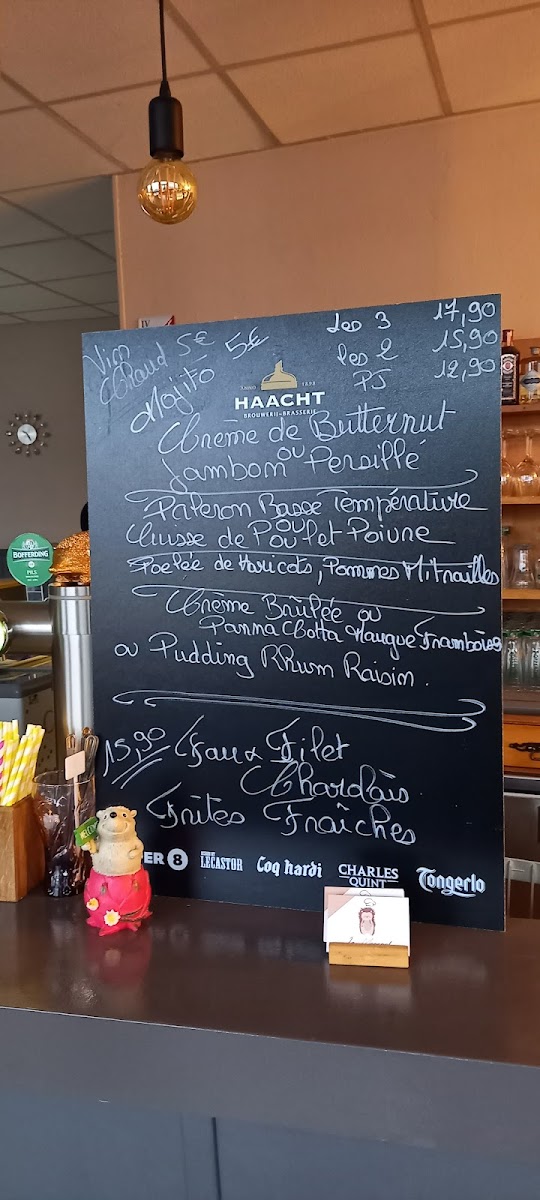 Vin Chaud 5€
Mojito 5€
Les 3 17,90
les 2 15,90
PJ 12,90
ANNO 1898
HAACHT
BROUWERIJ-BRASSERIE
Crème de Butternut
ou
Jambom Persillé
Paleron Basse Température
ou
Cuisse de Poulet Poivre
Poelée de Haricots, Pommes Mitrailles
Crème Brûlée ou
Panna Cotta Mangue Framboise
ou Pudding Rhum Raisin.
15,90 Faux Filet
Charolais
Frites Fraîches
ER 8
LECASTOR
Coq hardi
CHARLES QUINT
Tongerlo
BOFFERDING
PILS
WELCOME